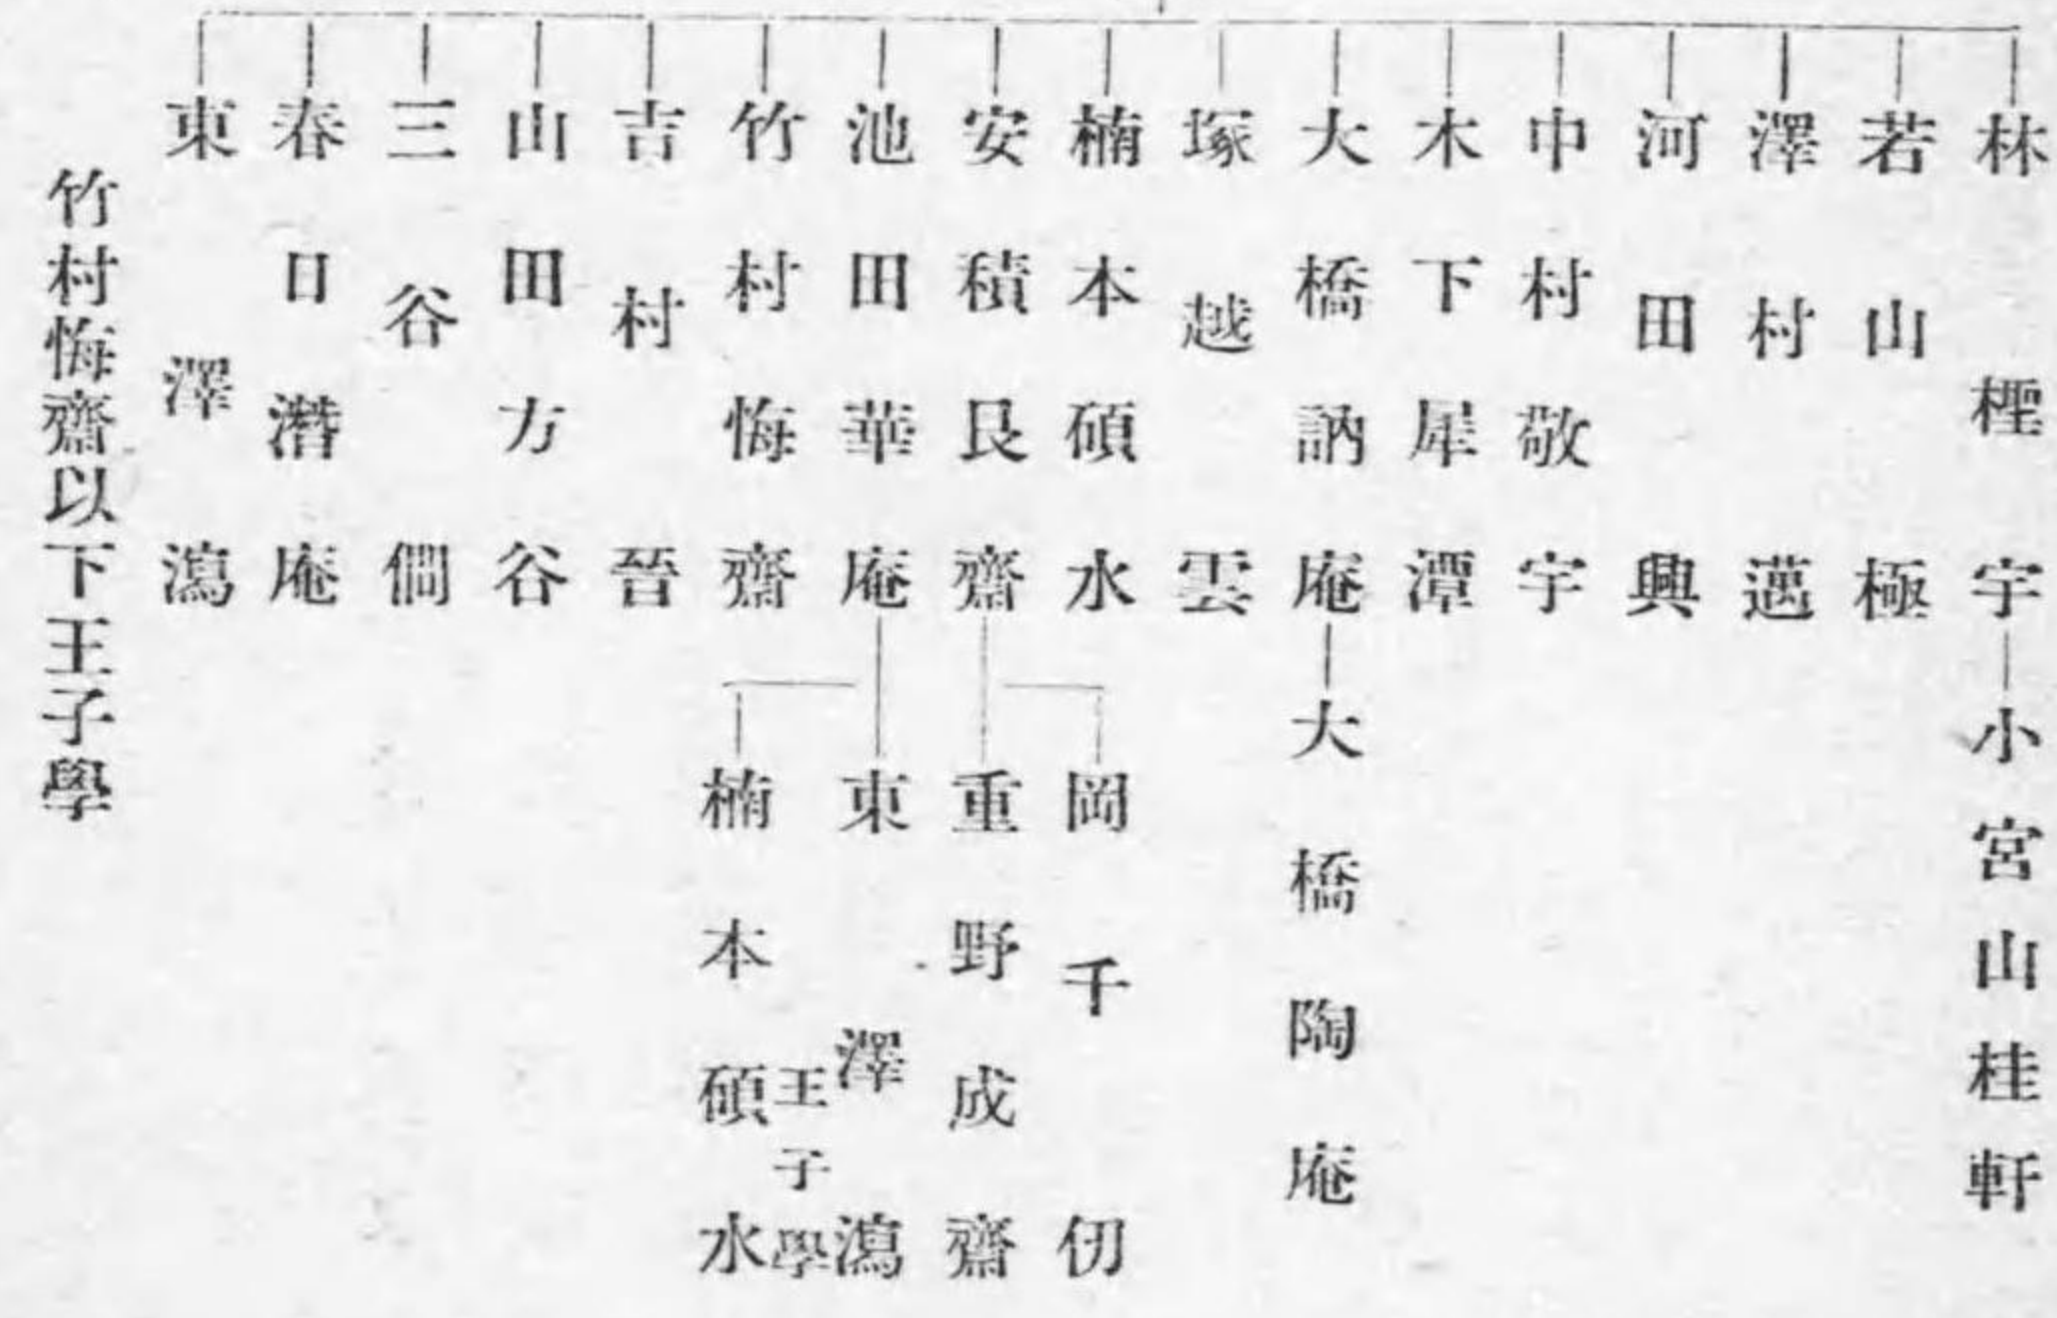 林檉宇
小宮山桂軒
若山極
澤村邁
河田興
中村敬宇
木下犀潭
大橋訥庵
大橋陶庵
塚越雲
楠本碩水
安積艮齋
岡千仞
重野成齋
池田華庵
東澤瀉
王子學
楠本碩水
竹村悔齋
吉村晉
山田方谷
三谷僩
春日潛庵
東澤瀉
竹村悔齋以下王子學